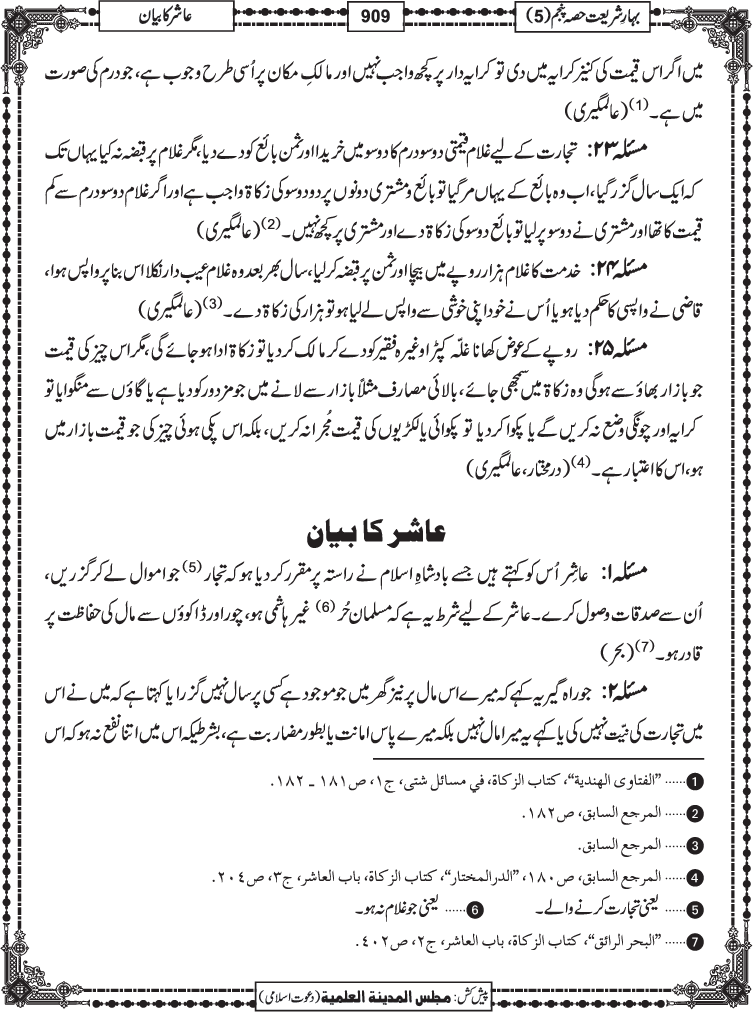 بہارِ شریعت حصہ پنجم (5)
909
عاشر کا بیان
میں اگر اس قیمت کی کنیز کرایہ میں دی تو کرایہ دار پر کچھ واجب نہیں اور مالکِ مکان پر اُسی طرح وجوب ہے، جو درم کی صورت
میں ہے۔(1) (عالمگیری)
مسئلہ ۲۳: تجارت کے لیے غلام قیمتی دوسو درم کا دوسو میں خریدا اور ثمن بائع کو دے دیا، مگر غلام پر قبضہ نہ کیا یہاں تک
کہ ایک سال گزر گیا، اب وہ بائع کے یہاں مر گیا تو بائع و مشتری دونوں پر دو دوسو کی زکاۃ واجب ہے اور اگر غلام دوسو درم سے کم
قیمت کا تھا اور مشتری نے دوسو پر لیا تو بائع دوسو کی زکاۃ دے اور مشتری پر کچھ نہیں۔(2) (عالمگیری)
مسئلہ ۲۴: خدمت کا غلام ہزار روپے میں بیچا اور ثمن پر قبضہ کر لیا، سال بھر بعد وہ غلام عیب دار نکلا اس بنا پر واپس ہوا،
قاضی نے واپسی کا حکم دیا ہو یا اُس نے خود اپنی خوشی سے واپس لے لیا ہو تو ہزار کی زکاۃ دے۔(3) (عالمگیری)
مسئلہ ۲۵: روپے کے عوض کھانا غلّہ کپڑا وغیرہ فقیر کو دے کر مالک کر دیا تو زکاۃ ادا ہو جائے گی، مگر اس چیز کی قیمت
جو بازار بھاؤ سے ہوگی وہ زکاۃ میں سمجھی جائے، بالائی مصارف مثلاً بازار سے لانے میں جو مزدور کو دیا ہے یا گاؤں سے منگوایا تو
کرایہ اور چونگی وضع نہ کریں گے یا پکوا کر دیا تو پکوائی یا لکڑیوں کی قیمت مُجرا نہ کریں، بلکہ اس پکی ہوئی چیز کی جو قیمت بازار میں
ہو، اس کا اعتبار ہے۔(4) (درمختار، عالمگیری)
عاشر کا بیان
مسئلہ ۱: عاشِر اُس کو کہتے ہیں جسے بادشاہِ اسلام نے راستہ پر مقرر کر دیا ہو کہ تجار(5) جو اموال لے کر گزریں،
اُن سے صدقات وصول کرے۔ عاشر کے لیے شرط یہ ہے کہ مسلمان حُر(6) غیر ہاشمی ہو، چور اور ڈاکوؤں سے مال کی حفاظت پر
قادر ہو۔(7) (بحر)
مسئلہ ۲: جو راہ گیر یہ کہے کہ میرے اس مال پر نیز گھر میں جو موجود ہے کسی پر سال نہیں گزرا یا کہتا ہے کہ میں نے اس
میں تجارت کی نیّت نہیں کی یا کہے یہ میرا مال نہیں بلکہ میرے پاس امانت یا بطور مضاربت ہے، بشرطیکہ اس میں اتنا نفع نہ ہو کہ اس
1 ...... "الفتاوى الهندية"، كتاب الزكاة، في مسائل شتى، ج۱، ص۱۸۱ ـ ۱۸۲.
2 ...... المرجع السابق، ص۱۸۲.
3 ...... المرجع السابق.
4 ...... المرجع السابق، ص۱۸۰، "الدرالمختار"، كتاب الزكاة، باب العاشر، ج۳، ص۲۰٤.
5 ...... یعنی تجارت کرنے والے۔ 6 ...... یعنی جو غلام نہ ہو۔
7 ...... "البحر الرائق"، كتاب الزكاة، باب العاشر، ج۲، ص۴۰۲.
پیش کش: مجلس المدينة العلمية (دعوتِ اسلامی)